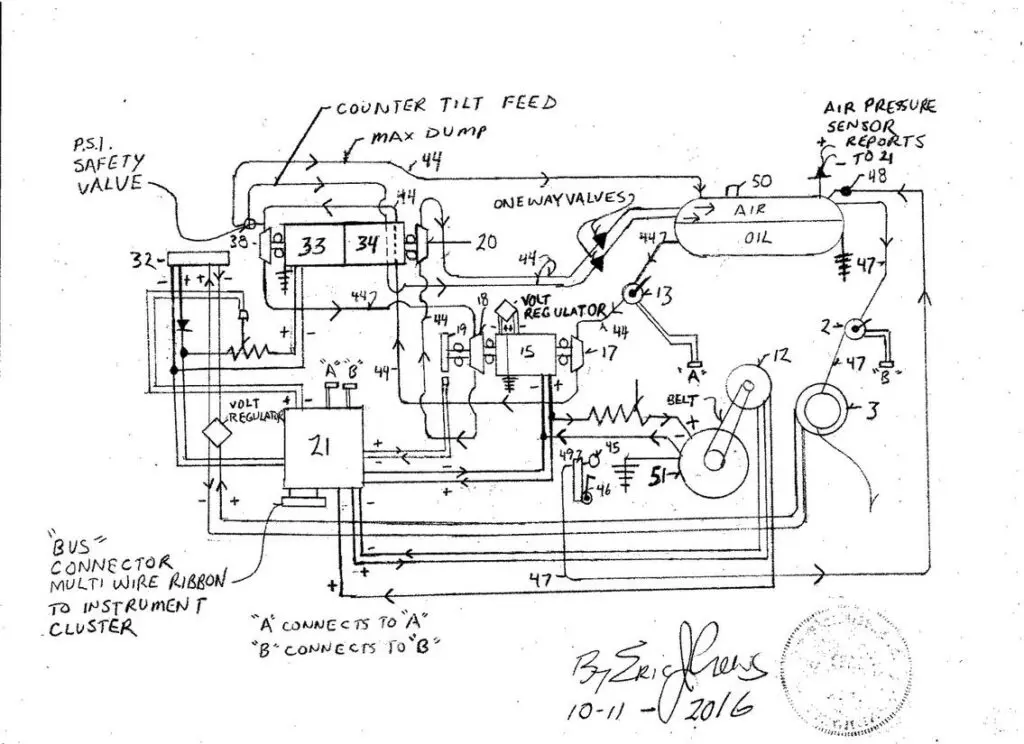 COUNTER TILT FEED
MAX DUMP
P.S.I.
SAFETY
VALVE
44
ONEWAYVALVES
AIR PRESSURE
SENSOR
+ REPORTS
- TO 21
50
48
AIR
OIL
44
38
33
34
20
32
44
13
47
44
18
VOLT
REGULATOR
19
15
17
44
44
44
44
2
"B"
47
12
3
"A"
"A" "B"
BELT
VOLT
REGULATOR
21
49
45
46
51
47
"BUS"
CONNECTOR
MULTI WIRE RIBBON
TO INSTRUMENT
CLUSTER
"A" CONNECTS TO "A"
"B" CONNECTS TO "B"
By Eric
10-11-2016